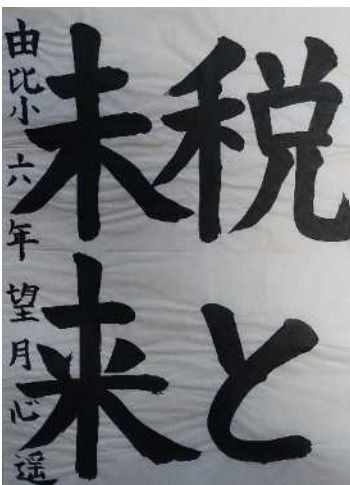 税と
未来
由比小六年望月心遥